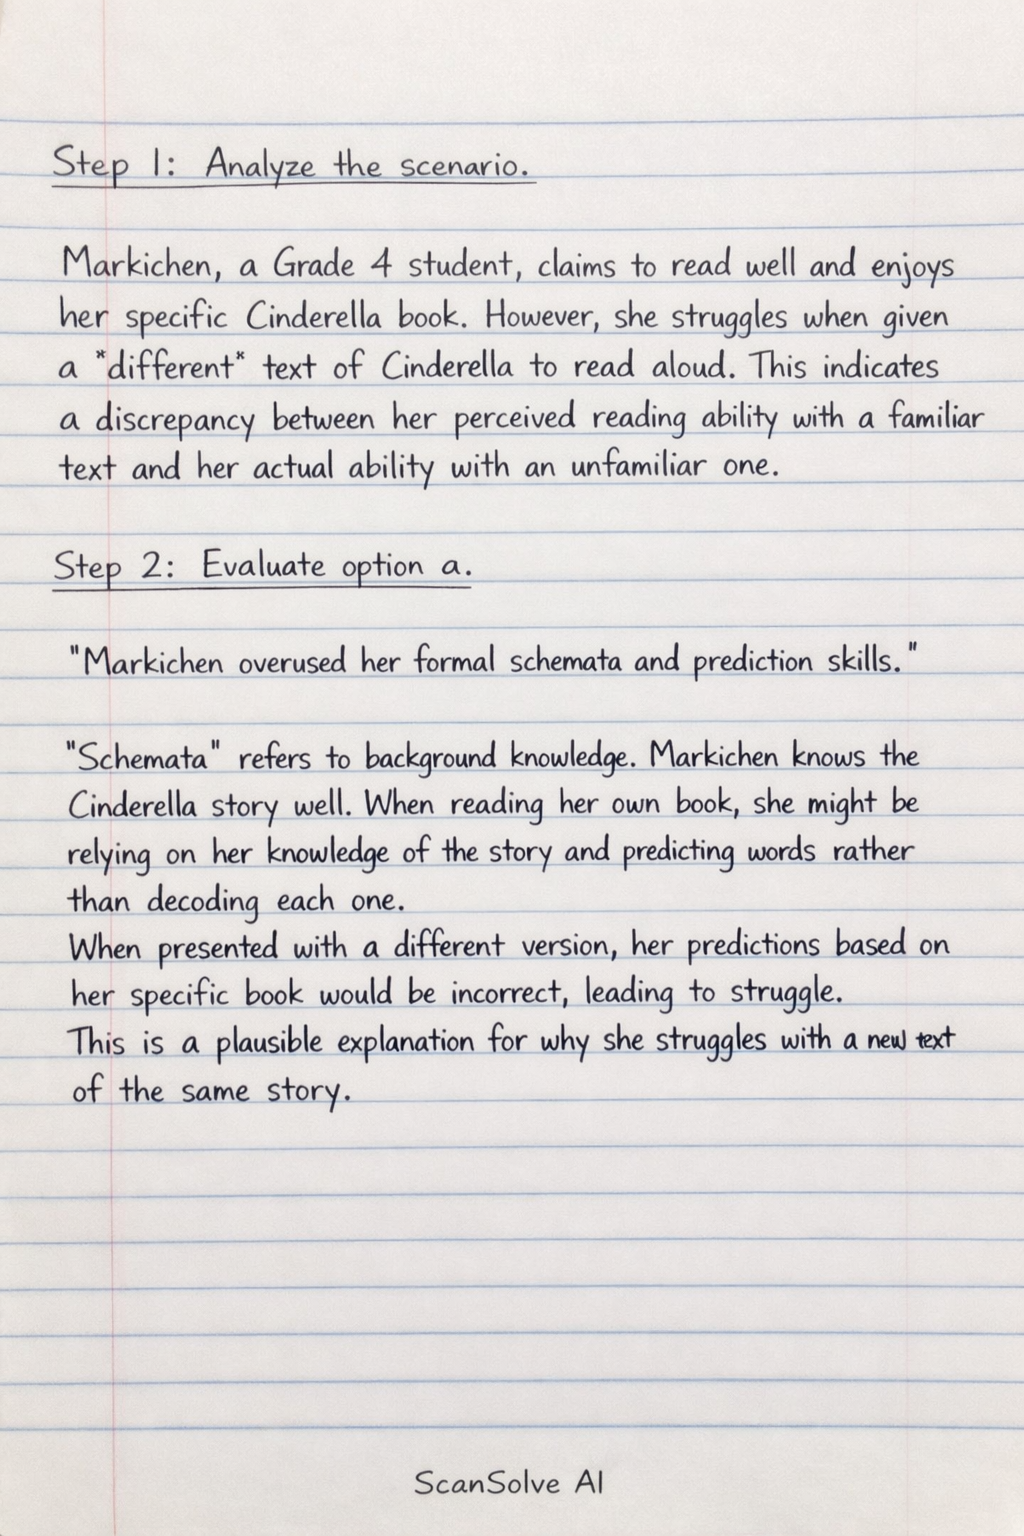 Step 1: Analyze the scenario.
Markichen, a Grade 4 student, claims to read well and enjoys
her specific Cinderella book. However, she struggles when given
a *different* text of Cinderella to read aloud. This indicates
a discrepancy between her perceived reading ability with a familiar
text and her actual ability with an unfamiliar one.
Step 2: Evaluate option a.
"Markichen overused her formal schemata and prediction skills."
"Schemata" refers to background knowledge. Markichen knows the
Cinderella story well. When reading her own book, she might be
relying on her knowledge of the story and predicting words rather
than decoding each one.
When presented with a different version, her predictions based on
her specific book would be incorrect, leading to struggle.
This is a plausible explanation for why she struggles with a new text
of the same story.
ScanSolve AI